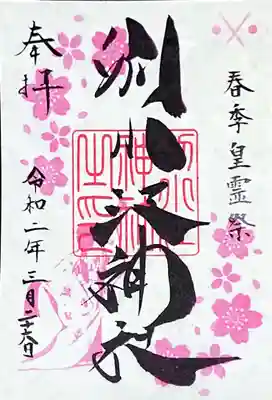 春季皇靈祭
別小江神社
奉拝
令和二年三月二十六日
別小江神社之印